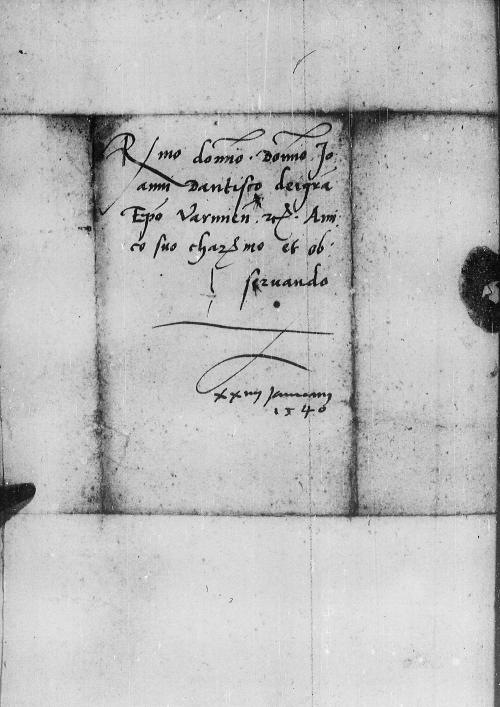 Rmo domno. Domno Jo
anni Dantisco dei gra
Epo Varmien. etc. Ami
co suo charmo et ob
seruando
Januarij
1540